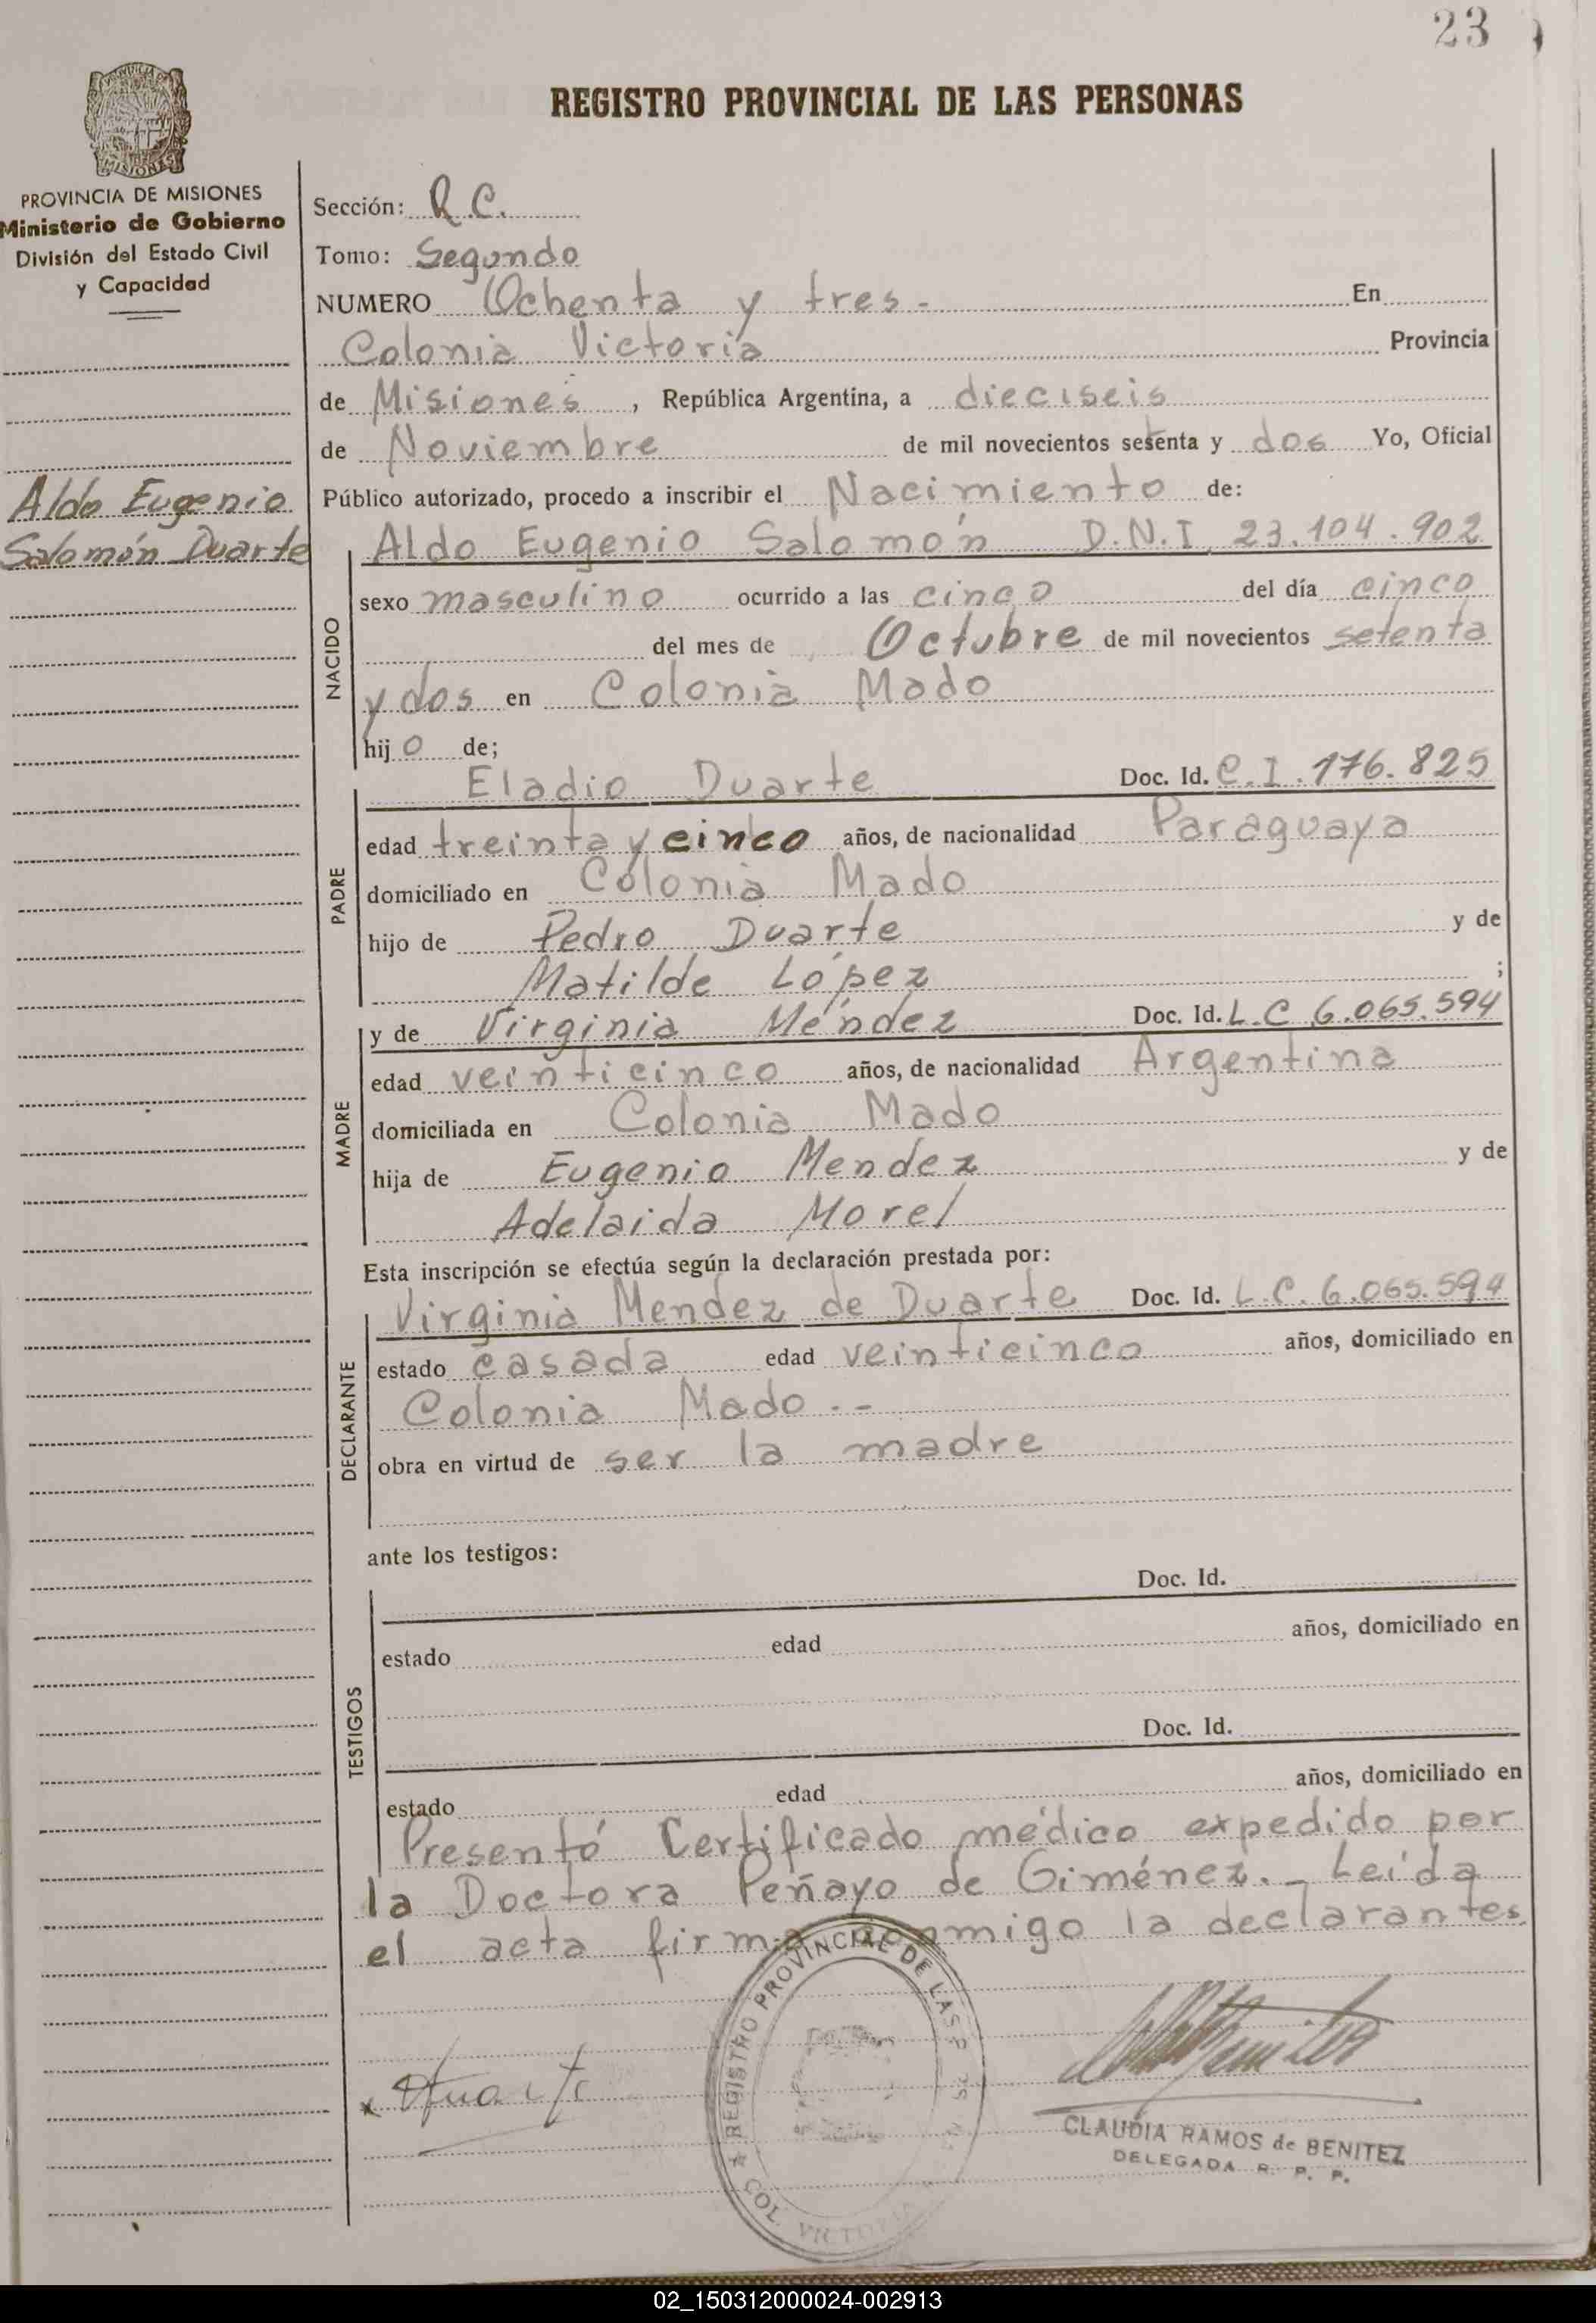 23
REGISTRO PROVINCIAL DE LAS PERSONAS
MISIONES
PROVINCIA DE MISIONES
Ministerio de Gobierno
División del Estado Civil
y Capacidad
Aldo Eugenio
Salomón Duarte
Sección: R.C.
Tomo: Segundo
NUMERO Ochenta y tres - En
Colonia Victoria Provincia
de Misiones, República Argentina, a dieciseis
de Noviembre de mil novecientos setenta y dos Yo, Oficial
Público autorizado, procedo a inscribir el Nacimiento de:
NACIDO
Aldo Eugenio Salomón D.N.I. 23.104.902
sexo masculino ocurrido a las cinco del día cinco
del mes de Octubre de mil novecientos setenta
y dos en Colonia Mado
hijo de;
PADRE
Eladio Duarte Doc. Id. C.I. 176.825
edad treinta y cinco años, de nacionalidad Paraguaya
domiciliado en Colonia Mado
hijo de Pedro Duarte y de
Matilde López ;
MADRE
y de Virginia Méndez Doc. Id. L.C 6.065.594
edad veinticinco años, de nacionalidad Argentina
domiciliada en Colonia Mado
hija de Eugenio Mendez y de
Adelaida Morel
Esta inscripción se efectúa según la declaración prestada por:
DECLARANTE
Virginia Mendez de Duarte Doc. Id. L.C. 6.065.594
estado casada edad veinticinco años, domiciliado en
Colonia Mado --
obra en virtud de ser la madre
ante los testigos:
TESTIGOS
Doc. Id.
estado edad años, domiciliado en
Doc. Id.
estado edad años, domiciliado en
Presentó Certificado médico expedido por
la Doctora Peñayo de Giménez. - Leída
el acta firma conmigo la declarantes.
REGISTRO PROVINCIAL DE LAS P
COL. VICTORIA
CLAUDIA RAMOS de BENITEZ
DELEGADA R. P. P.
02_150312000024-002913